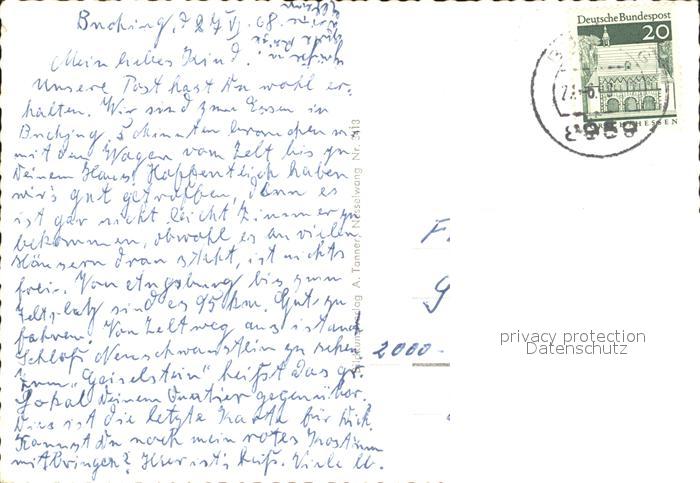 Buching, d. 27. VI. 68.
Mein liebes Kind!
Unsere Post hast Du wohl er-
halten. Wir sind zum Essen in
Buching, 5 Minuten brauchen wir
mit dem Wagen vom Zelt bis zu
Deinem Haus. Hoffentlich haben
wir's gut getroffen, denn es
ist gar nicht leicht Zimmer zu
bekommen, obwohl es an vielen
Häusern dran steht, ist nichts
frei. Von Augsburg bis zum
Zeltplatz sind es 95 km. Gut zu
fahren. Vom Zeltweg aus ist auch
Schloß Neuschwanstein zu sehen.
Zum "Geiselstein" heißt das gr.
Lokal Deinem Quartier gegenüber.
Dies ist die letzte Karte für Dich.
Kannst Du noch mein rotes Kostüm
mitbringen? Hier ist's heiß. Viele lb.
Verlag A. Tanner, Nesselwang Nr.
Deutsche Bundespost
20
HESSEN
8959
F.
G
2000
privacy protection
Datenschutz